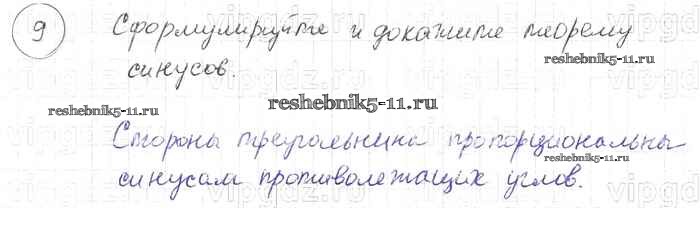 9 Сформулируйте и докажите теорему
синусов.
reshebnik5-11.ru
reshebnik5-11.ru
Стороны треугольника пропорциональны
reshebnik5-11.ru
синусам противолежащих углов.